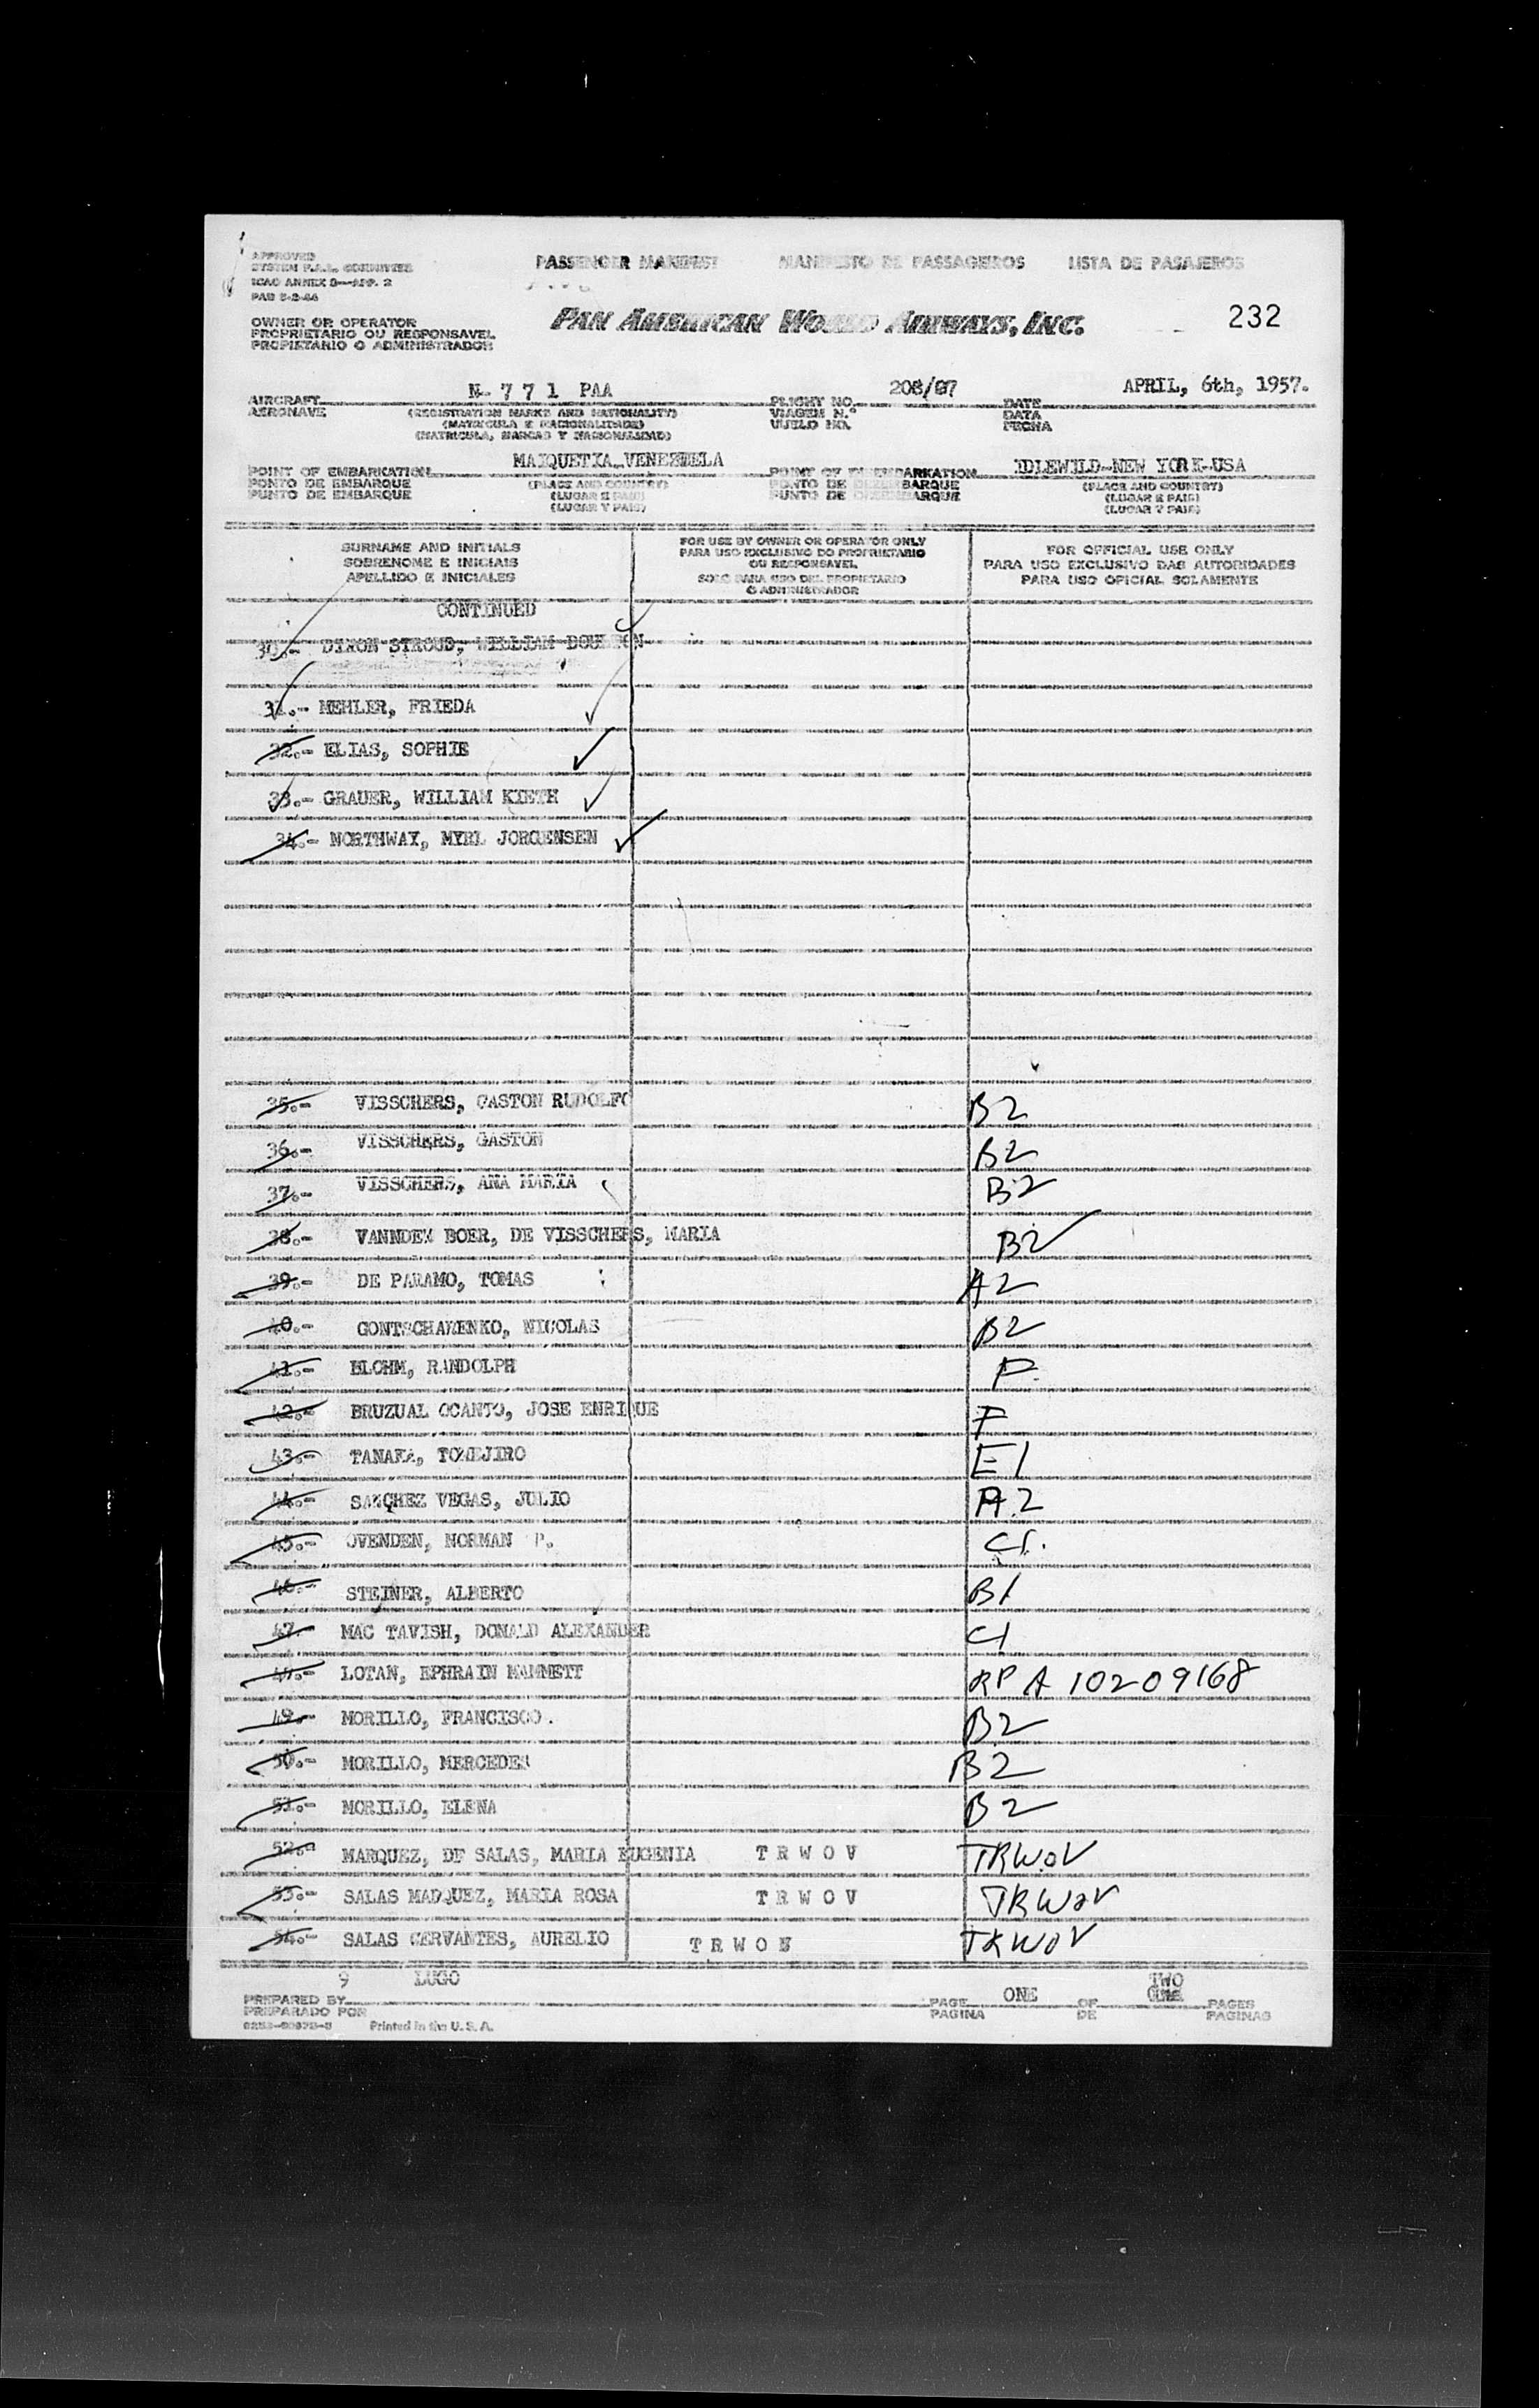 APPROVED PASSENGER MANIFEST MANIFESTO DE PASSAGEIROS LISTA DE PASAJEROS
SYSTEM F.A.L. COMMITTEE
ICAO ANNEX 9—APP. 2
PAN AMERICAN WORLD AIRWAYS, INC. 232
OWNER OR OPERATOR
PROPRIETARIO OU RESPONSAVEL
PROPIETARIO O ADMINISTRADOR
AIRCRAFT N- 7 7 1 PAA FLIGHT NO. 208/ DATE APRIL, 6th, 1957.
AERONAVE (REGISTRATION MARKS AND NATIONALITY) VIAGEM N.º DATA
(MATRICULA E NACIONALIDADE) VUELO NO. FECHA
(MATRICULA, MARCAS Y NACIONALIDAD)
POINT OF EMBARKATION MAIQUETIA-VENEZUELA POINT OF DISEMBARKATION IDLEWILD-NEW YORK-USA
PONTO DE EMBARQUE (PLACE AND COUNTRY) PONTO DE DESEMBARQUE (PLACE AND COUNTRY)
PUNTO DE EMBARQUE (LUGAR E PAIS) PUNTO DE DESEMBARQUE (LUGAR E PAIS)
(LUGAR Y PAIS) (LUGAR Y PAIS)
SURNAME AND INITIALS FOR USE BY OWNER OR OPERATOR ONLY FOR OFFICIAL USE ONLY
SOBRENOME E INICIAIS PARA USO EXCLUSIVO DO PROPRIETARIO PARA USO EXCLUSIVO DAS AUTORIDADES
OU RESPONSAVEL
APELLIDO E INICIALES SOLO PARA USO DEL PROPIETARIO PARA USO OFICIAL SOLAMENTE
O ADMINISTRADOR
CONTINUED
30.- DIXON STROUD, WILLIAM
31.- MEHLER, FRIEDA
32.- ELIAS, SOPHIE
33.- GRAUER, WILLIAM KIETH
34.- NORTHWAY, MYRL JORGENSEN
35.- VISSCHERS, GASTON RUDOLFO B2
36.- VISSCHERS, GASTON B2
37.- VISSCHERS, ANA MARIA B2
38.- VANNDEN BOER, DE VISSCHERS, MARIA B2
39.- DE PARAMO, TOMAS A2
40.- GONTSCHARENKO, NICOLAS B2
41.- BLOHM, RANDOLPH F.
42.- BRUZUAL OCANTO, JOSE ENRIQUE F
43.- TANAKA, TOMEJIRO E1
44.- SANCHEZ VEGAS, JULIO A2
45.- OVENDEN, NORMAN P. C1.
46.- STEINER, ALBERTO B1
47.- MAC TAVISH, DONALD ALEXANDER C1
48.- LOTAN, EPHRAIN MAMMETT RP A 10209168
49.- MORILLO, FRANCISCO. B2
50.- MORILLO, MERCEDES B2
51.- MORILLO, ELENA B2
52.- MARQUEZ, DE SALAS, MARIA EUGENIA T R W O V TRWOV
53.- SALAS MARQUEZ, MARIA ROSA T R W O V TRWOV
54.- SALAS CERVANTES, AURELIO T R W O V TRWOV
9 LUGO
PREPARED BY PAGE ONE OF TWO PAGES
PREPARADO POR PAGINA DE PAGINAS
Printed in the U. S. A.